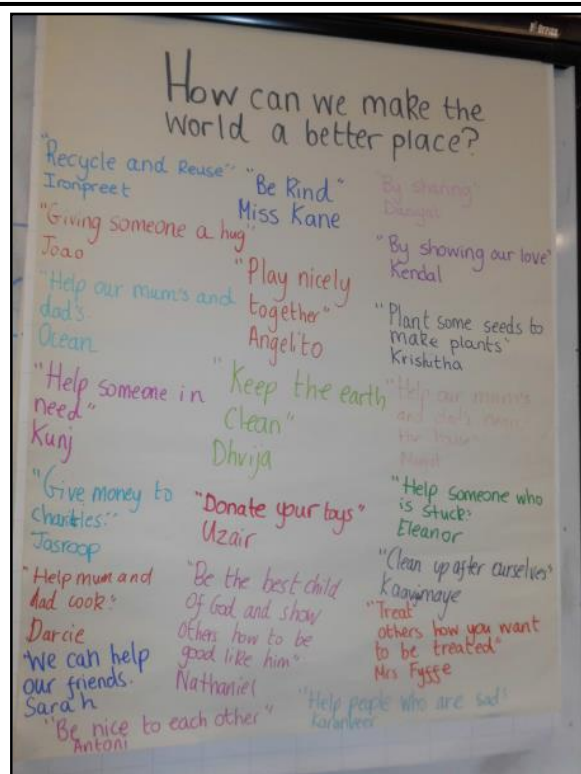 How can we make the
world a better place?
"Recycle and Reuse"
Ironpreet
"Giving someone a hug"
Joao
"Help our mum's and
dad's
Ocean
"Help someone in
need"
Kunj
"Give money to
charities."
Jasroop
"Help mum and
dad cook."
Darcie
"We can help
our friends.
Sarah
"Be nice to each other"
Antoni
"Be Kind"
Miss Kane
"Play nicely
together"
Angelito
"Keep the earth
Clean"
Dhvija
"Donate your toys"
Uzair
"Be the best child
Of God and show
others how to be
good like him"
Nathaniel
"By sharing"
"By showing our love"
Kendal
"Plant some seeds to
make plants"
Krishitha
"Help our mum's
and dad's
the house"
"Help someone who
is stuck."
Eleanor
"Clean up after ourselves"
"Treat
others how you want
to be treated"
Mrs Fygge
"Help people who are sad"
Karanveer